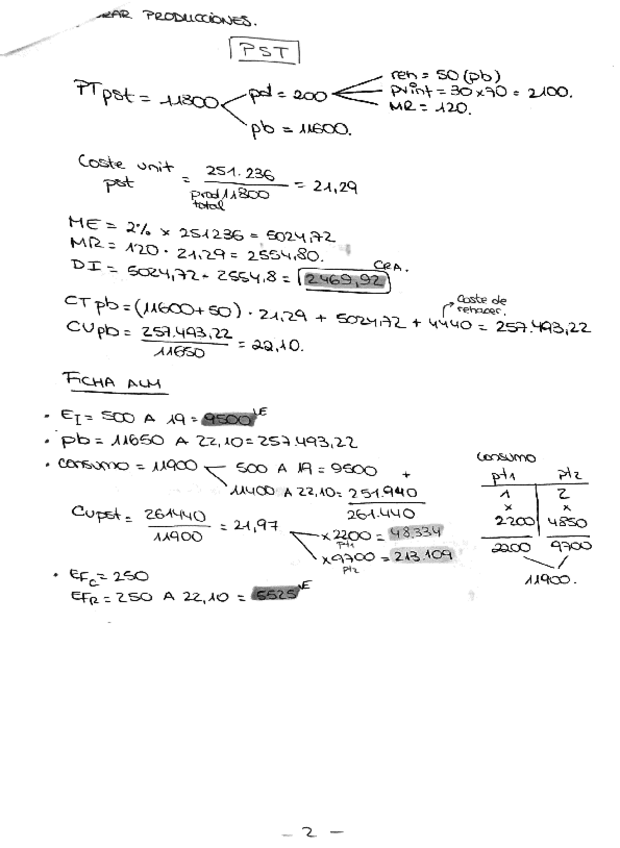 PRODUCCIONES.
PST
PTpst = 11800
pd = 200
reh = 50 (pb)
pvint = 30 x 70 = 2100.
MR = 120.
pb = 11600.
Coste unit pst = 251.236 / prod total 11800 = 21,29
ME = 2% x 251236 = 5024,72
MR = 120 · 21,29 = 2554,80.
DI = 5024,72 - 2554,8 = 2469,92 CRA.
CTpb = (11600+50) · 21,29 + 5024,72 + 4440 = 257.493,22
Coste de rehacer.
CUpb = 257.493,22 / 11650 = 22,10.
FICHA ALM
· EI = 500 A 19 = 9500 LE
· pb = 11650 A 22,10 = 257.493,22
· consumo = 11900
500 A 19 = 9500 +
11400 A 22,10 = 251.940
261.440
CUpst = 261440 / 11900 = 21,97
x2200 = 48.334
pt1
x9700 = 213.109
pt2
consumo
pt1 pt2
1 2
x x
2200 4850
2200 9700
11900.
· EFc = 250
EFR = 250 A 22,10 = 5525 LE
- 2 -